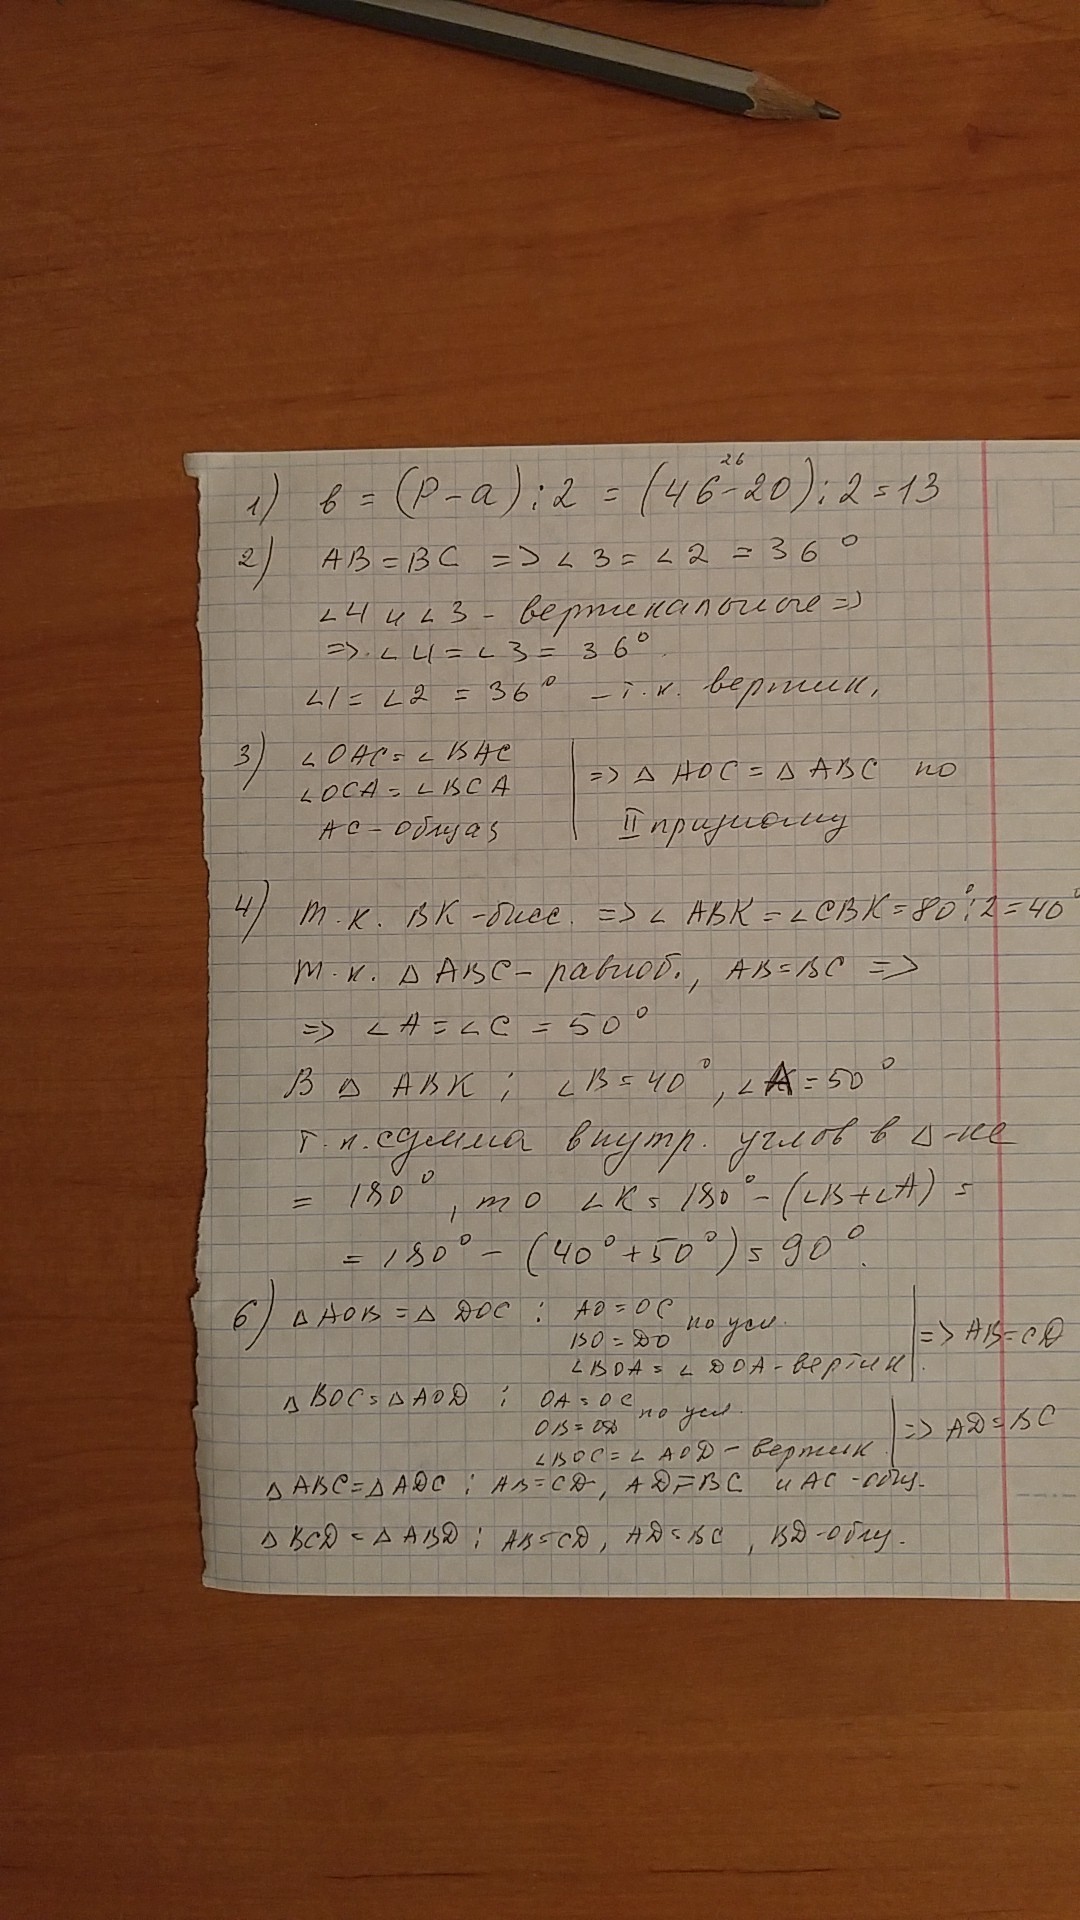 1) в = (P - a) : 2 = (46 - 20) : 2 = 13
26
2) AB = BC => ∠3 = ∠2 = 36°
∠4 и ∠3 - вертикальные =>
=> ∠4 = ∠3 = 36°.
∠1 = ∠2 = 36° - т.к. вертик.
3) ∠OAC = ∠BAC
∠OCA = ∠BCA
AC - общая
=> △ AOC = △ ABC по
II признаку
4) т.к. BK - бисс. => ∠ ABK = ∠CBK = 80° : 2 = 40°
т.к. △ ABC - равноб., AB = BC =>
=> ∠A = ∠C = 50°
В △ ABK ; ∠B = 40°, ∠A = 50°
т.к. сумма внутр. углов в △-ке
= 180°, то ∠K = 180° - (∠B + ∠A) =
= 180° - (40° + 50°) = 90°.
6) △ AOB = △ DOC : AO = OC
BO = DO по усл.
∠BOA = ∠ DOA - вертик.
=> AB = CD
△ BOC = △ AOD ; OA = OC
OB = OD по усл.
∠BOC = ∠ AOD - вертик
=> AD = BC
△ ABC = △ ADC ; AB = CD, AD = BC и AC - общ.
△ BCD = △ ABD ; AB = CD, AD = BC, BD - общ.